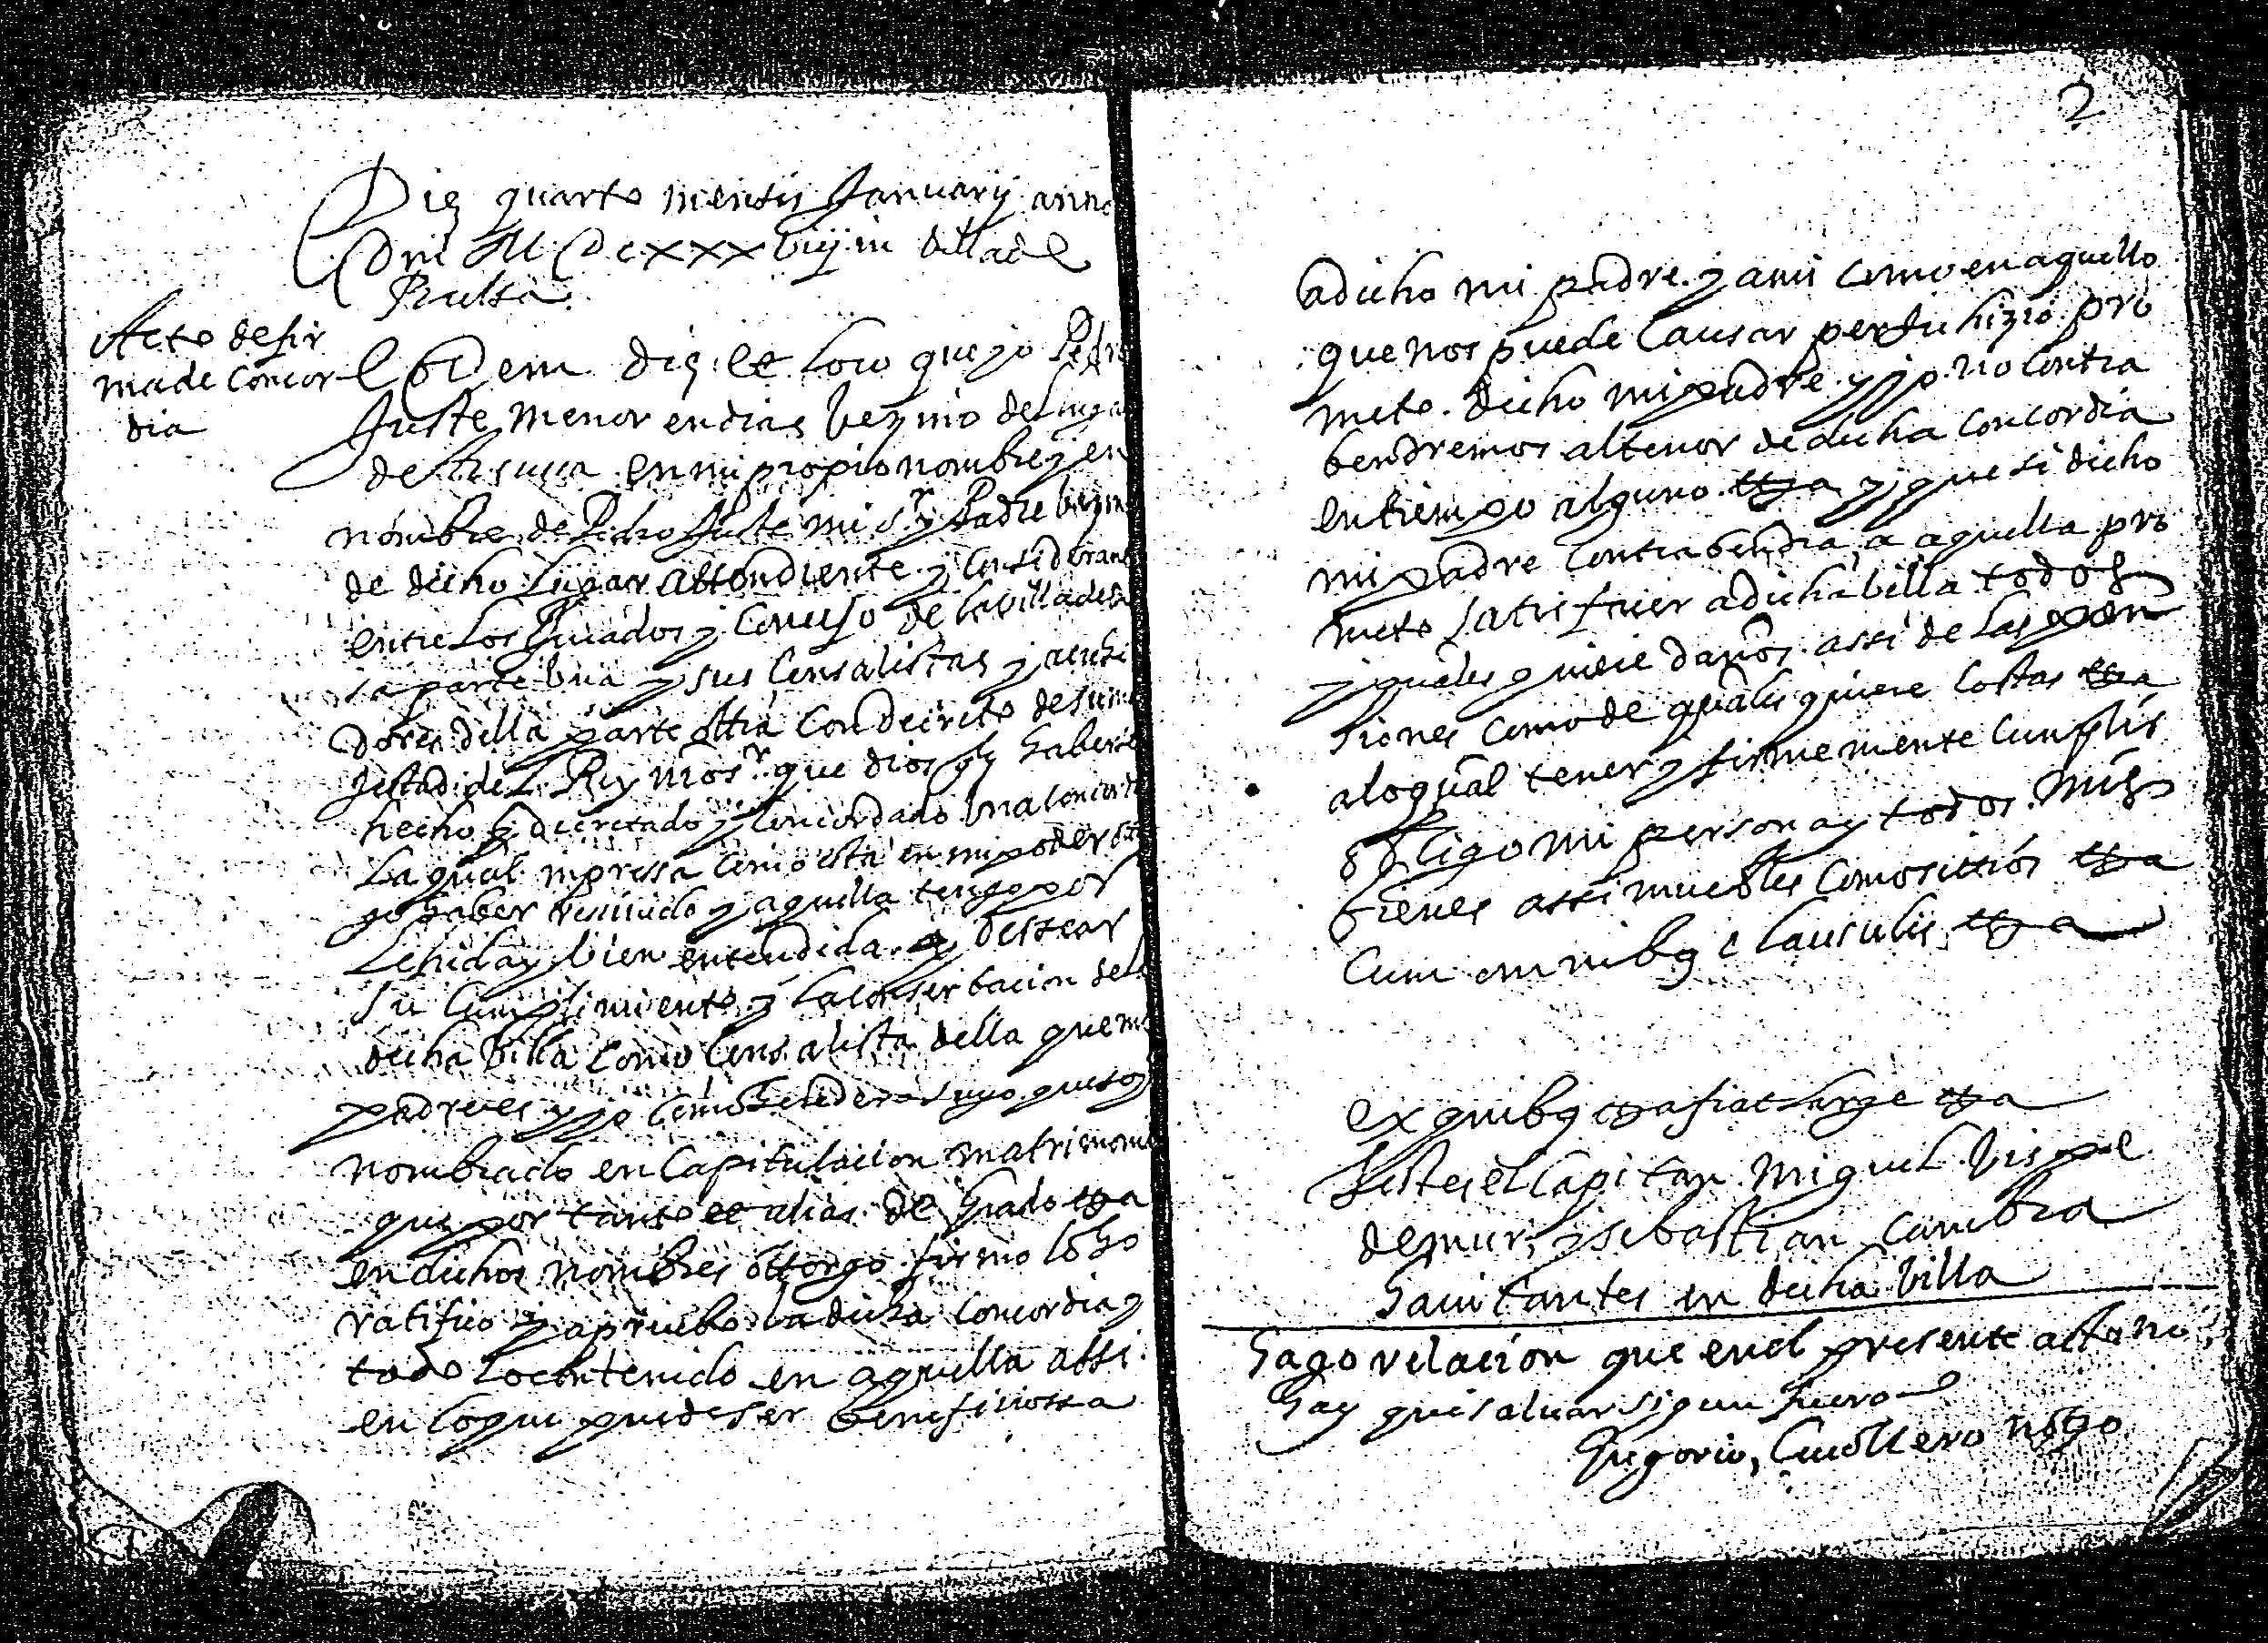 Die quarto mensis Januarij anno
Dni M Dcxxxviij in villa de
Acto de fir
ma de concor
dia
Eodem die et loco que yo Pedro
Juste menor en dias vezino del lugar
de en mi propio nombre y en
nombre de Pedro Juste mi Sr y Padre vezino
de dicho lugar attendiente y considerante
entre los Jurados y Concejo de la villa de
la parte una y sus Censalistas y acrehe
dores della parte ottra con decreto de su ma
jestad del Rey nro sr que dios gde haberse
hecho y decretado y concordado una concordia
La qual impressa como esta en mi poder
go haber recivido y aquella tengo por
Lehida y bien entendida y dessear
su cumplimiento y la conserbacion de la
dicha villa como censalista della que mi
padre es y yo como heredero suyo que soy
nombrado en Capitulacion matrimonial
que por tanto et alias de Grado etta
en dichos nombres ottorgo firmo loho
ratifico y apruebo la dicha Concordia y
todo lo contenido en aquella assi
en lo que puede ser beneficiossa
2
a dicho mi padre y a mi como en aquello
que nos puede causar perjuhizio pro
meto dicho mi padre y yo no contra
bendremos al tenor de dicha concordia
en tiempo alguno etta y que si dicho
mi padre contrabendra a aquella pro
meto satisfacer a dicha villa todos
y quales quiere daños assi de las pen
siones como de quales quiere costas etta
a lo qual tener y firmemente cumplir
obligo mi persona y todos mis
bienes assi muebles como sittios etta
Cum omnibus clausulis etta
ex quibus etta fiat large etta
Testes el Capitan Miguel Vispe
de mur y sebastian Cambra
havitantes en dicha villa
Hago relacion que en el presente acto no
hay que salvar sigun fuero
Gregorio, Cuôllero nôtº